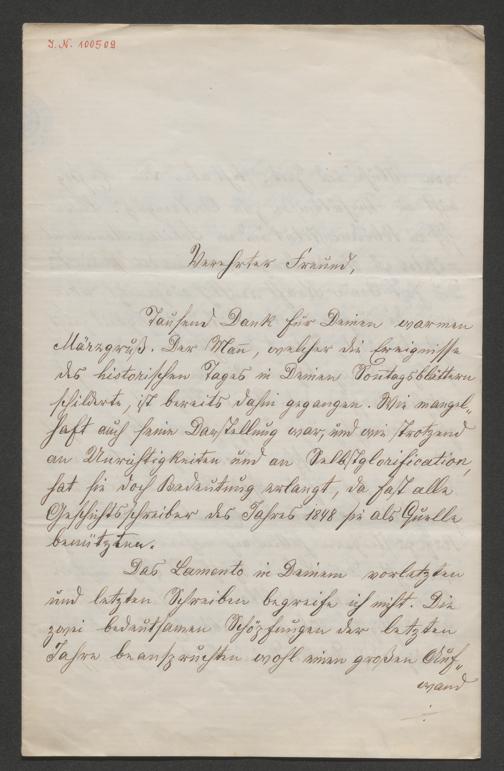 J. N. 100509
Verehrter Freund,
Tausend Dank für Deinen warmen
Märzgruß. Der Mañ, welcher die Ereignisse
des historischen Tages in Deinen Soñtagsblättern
schilderte, ist bereits dahin gegangen. Wie mangel„
haft auch seine Darstellung war, und wie strotzend
an Unrichtigkeiten und an Selbstglorification,
hat sie doch Bedeutung erlangt, da fast alle
Geschichtsschreiber des Jahres 1848 sie als Quelle
benützten.
Das Lamento in Deinem vorletzten
und letzten Schreiben begreife ich nicht. Die
zwei bedeutsamen Schöpfungen der letzten
Jahre beanspruchten wohl einen großen Auf„
wand